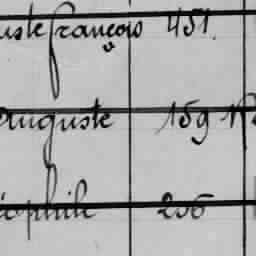 uste françois 451.
Auguste 159 N
éophile 256